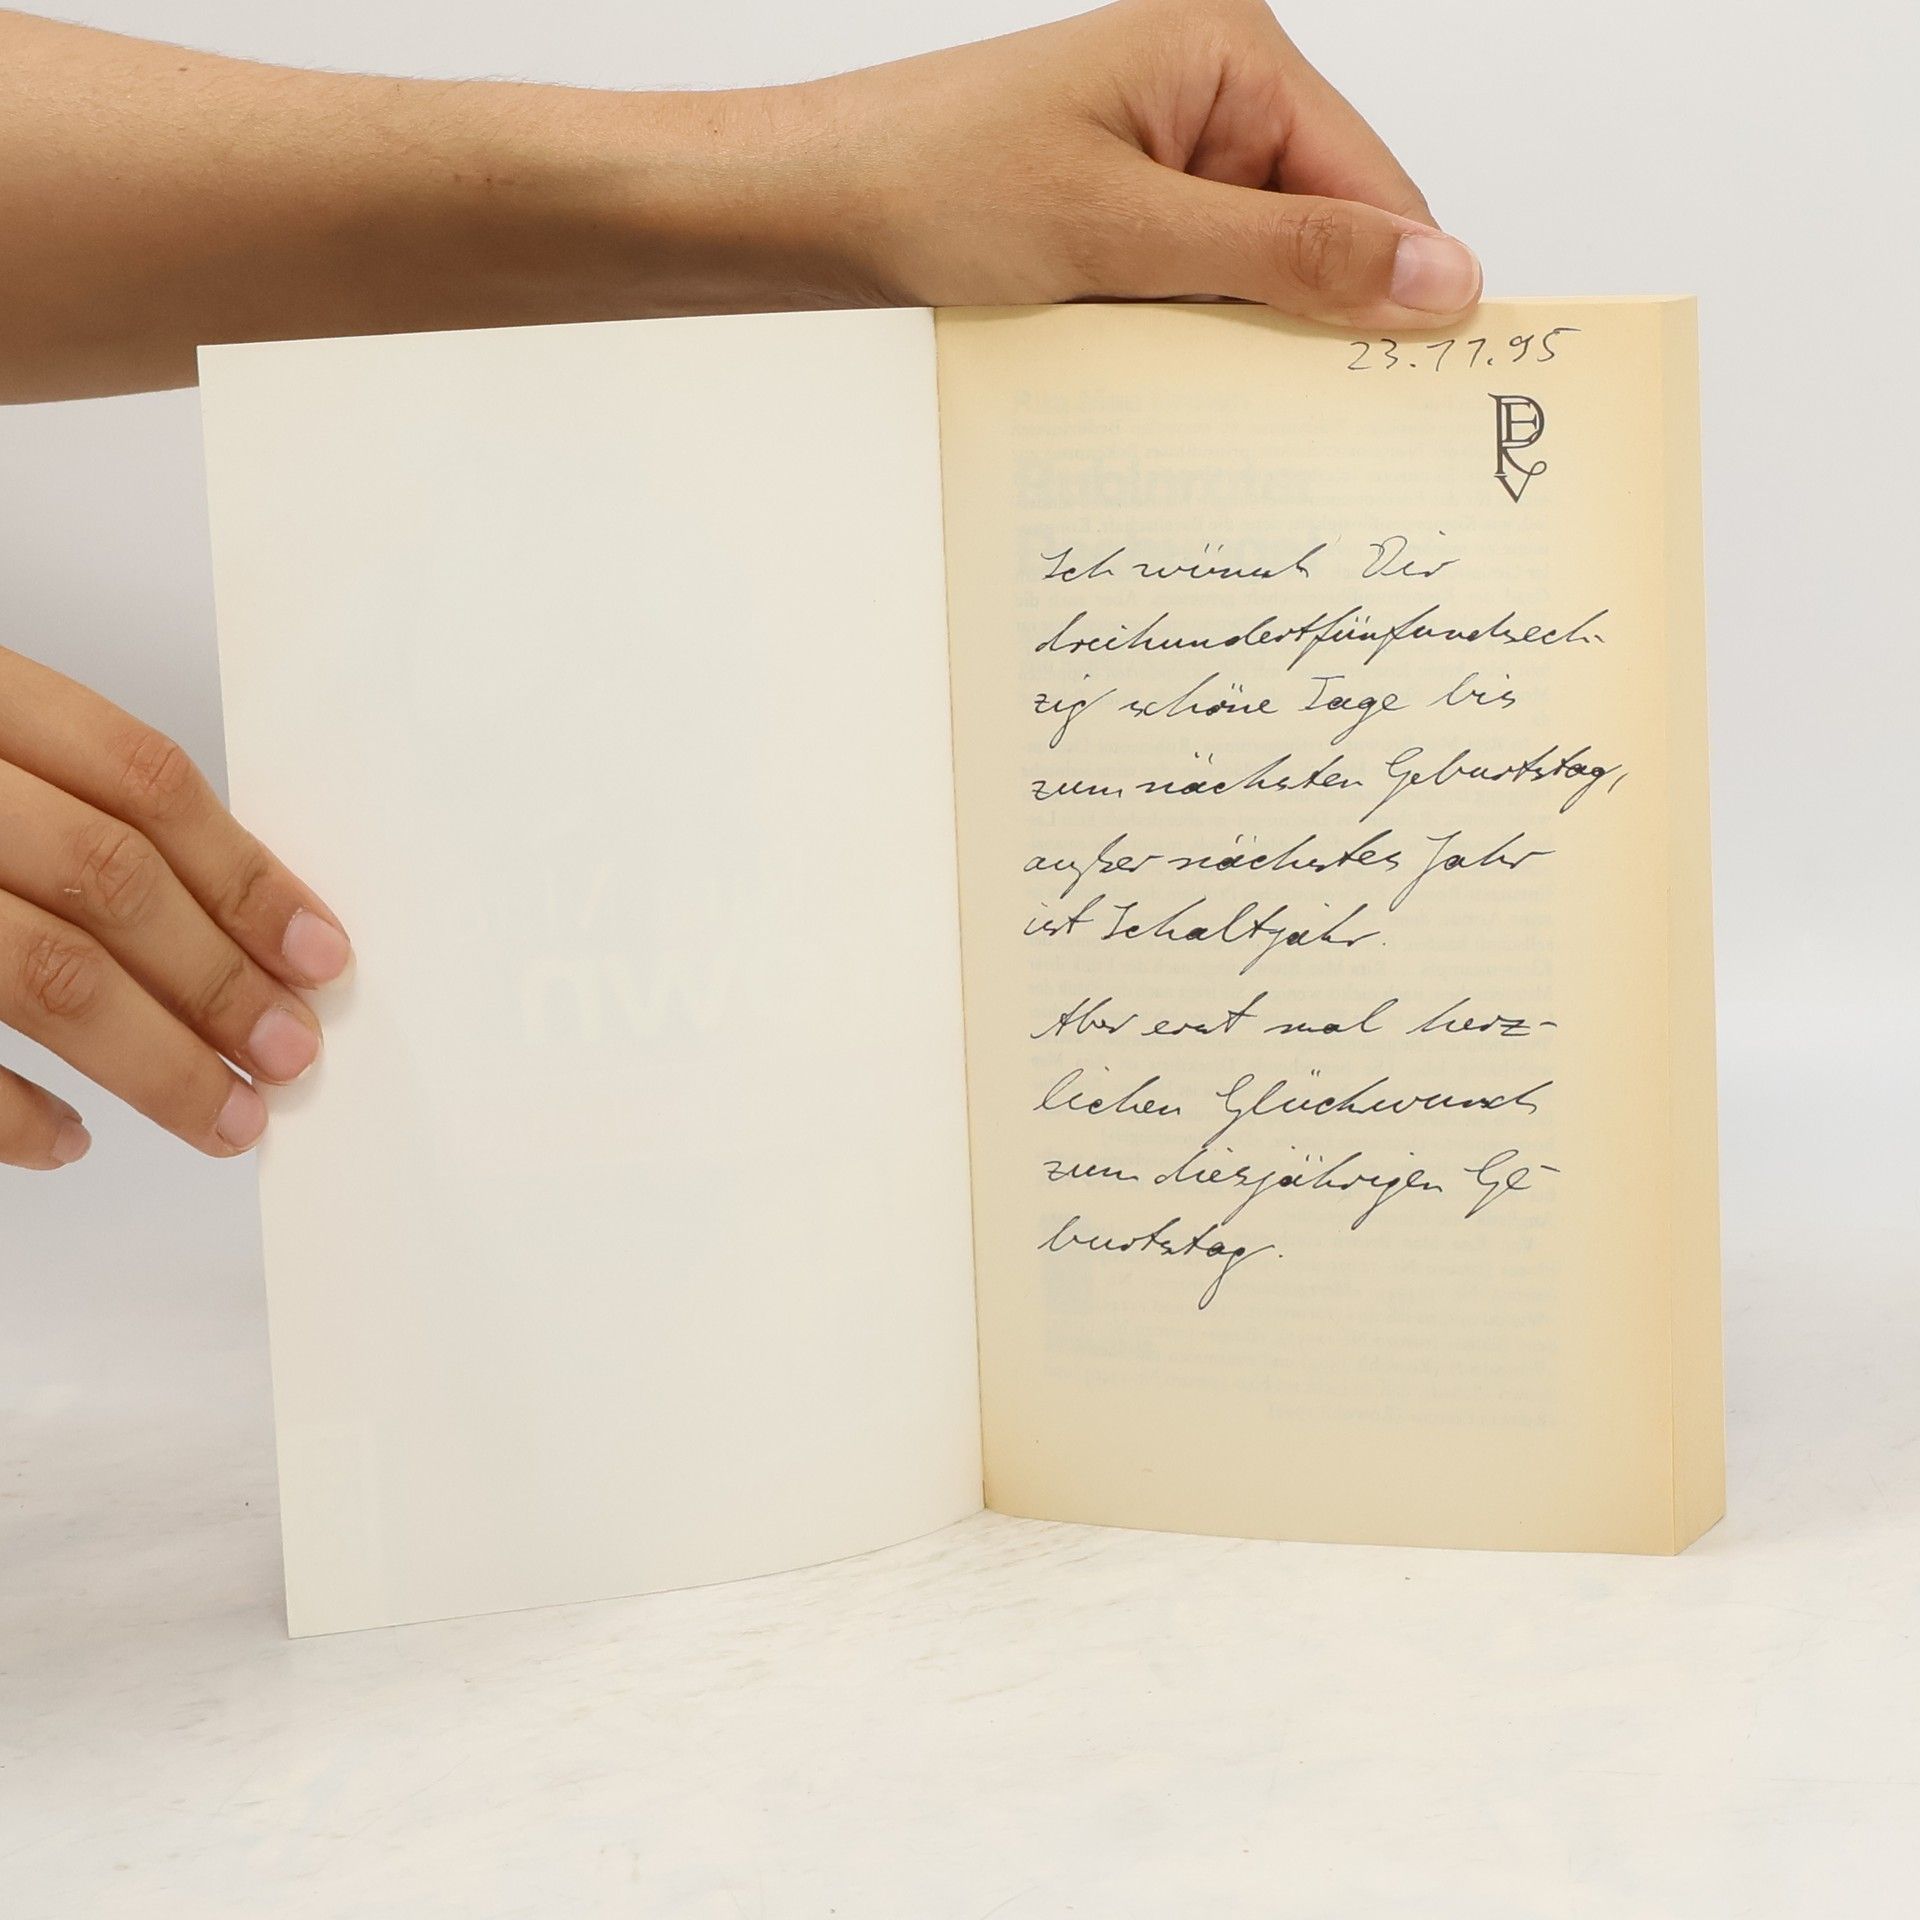 23.11.95
REV
Ich wünsch Dir
dreihundertfünfundsech-
zig schöne Tage bis
zum nächsten Geburtstag,
außer nächstes Jahr
ist Schaltjahr.
Aber erst mal herz-
lichen Glückwunsch
zum diesjährigen Ge-
burtstag.